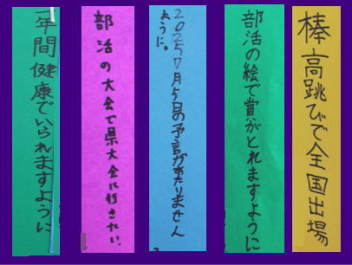 棒高跳びで全国出場
部活の絵で賞がとれますように
2025年7月5日の予言が当たりません
ように。
部活の大会で県大会に行きたい。
一年間健康でいられますように